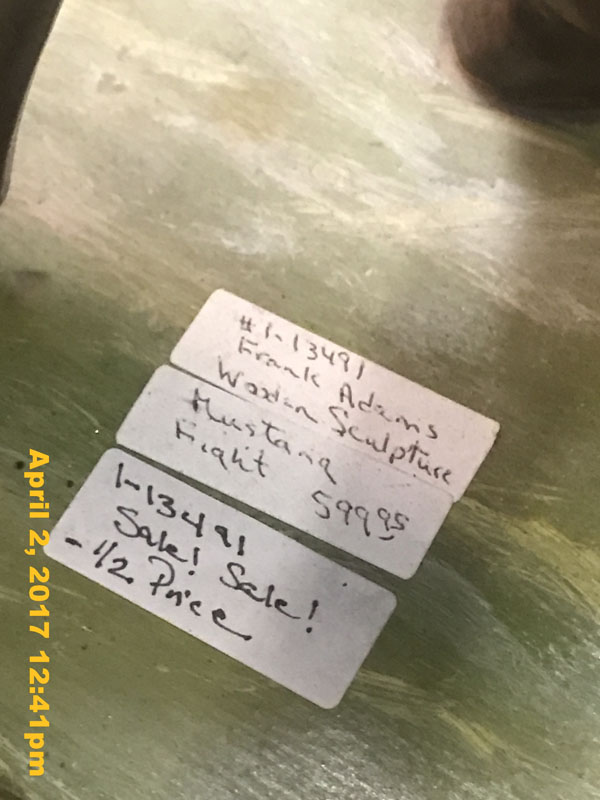 #1-13491
Frank Adams
Wooden Sculpture
Mustang
Fight 599 95
1-13491
Sale! Sale!
- 1/2 Price
April 2, 2017 12:41pm